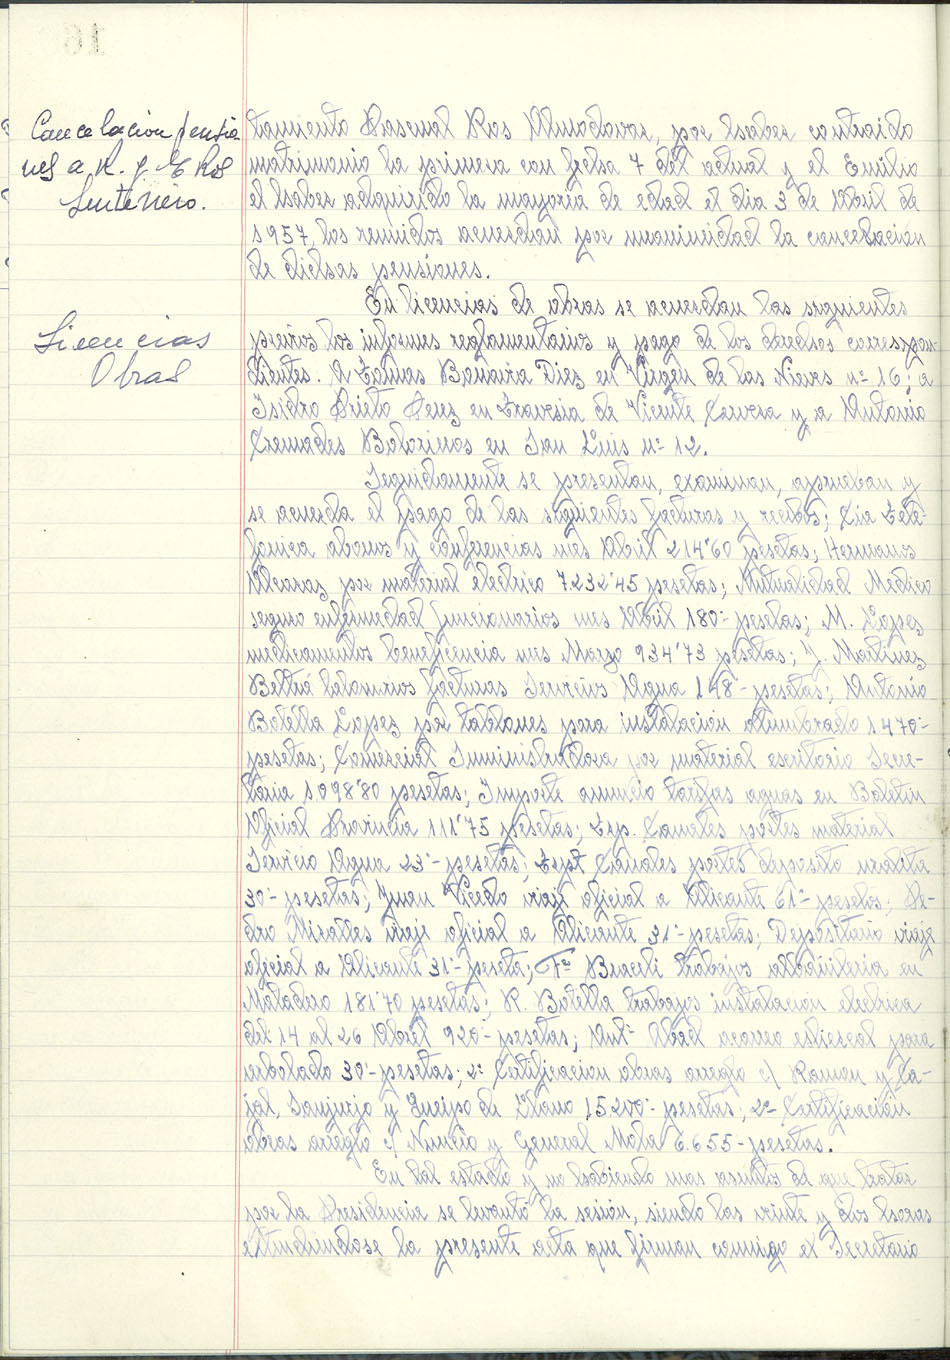 Cancelacion pensio
nes a R. y E Ros
Senterrero.
tamiento Personal Ros Almodovar, por haber contraido
matrimonio la primera con fecha 7 del actual y el Emilio
el haber adquirido la mayoria de edad el dia 3 de Abril de
1957, los reunidos acuerdan por unanimidad la cancelación
de dichas pensiones.
Licencias
Obras
En licencias de obras se acuerdan las siguientes
previos los informes reglamentarios y pago de los derechos correspon-
dientes. A Tomas Bonaira Diez en Virgen de las Nieves nº 16; a
Isidro Prieto Perez en Travesia de Vicente Cervera y a Antonio
Cremades Botorinos en San Luis nº 12.
Seguidamente se presentan, examinan, aprueban y
se acuerda el pago de las siguientes facturas y recibos; Cia Tele-
fonica abonos y conferencias mes Abril 214'60 pesetas; Hermanos
Alcaraz, por material electrico 7232'45 pesetas; Mutualidad Medico
seguro enfermedad funcionarios mes Abril 180'- pesetas; M. Lopez
medicamentos beneficencia mes Marzo 934'73 pesetas; J. Martinez
Beltrá talonarios facturas Servicios Agua 148'- pesetas; Antonio
Botella Lopez por tablones para instalacion alumbrado 1470'-
pesetas; Comercial Suministradora por material escritorio Secre-
taria 1098'80 pesetas; Importe anuncio tarifas aguas en Boletin
Oficial Provincia 111'75 pesetas; Exp. Canales portes material
Servicio Agua 23'- pesetas; Expt Canales portes deposito uralita
30'- pesetas; Juan Vicedo viaje oficial a Alicante 61'- pesetas; Pe-
dro Miralles viaje oficial a Alicante 31'- pesetas; Depositario viaje
oficial a Alicante 31'- peseta; Fº Braceli trabajos albañileria en
Matadero 181'70 pesetas; R. Botella trabajos instalacion electrica
del 14 al 26 Abril 920'- pesetas; Antº Abad acarreo estiercol para
arbolado 30'- pesetas; 2ª Certificacion obras arreglo c/ Ramon y Ca-
jal, Sanjurjo y Queipo de Llano 15200'- pesetas; 2ª Certificación
obras arreglo c/ Nuncio y General Mola 6.655- pesetas.
En tal estado y no habiendo mas asuntos de que tratar
por la Presidencia se levantó la sesion, siendo las veinte y dos horas
extendiendose la presente acta que firman conmigo el Secretario